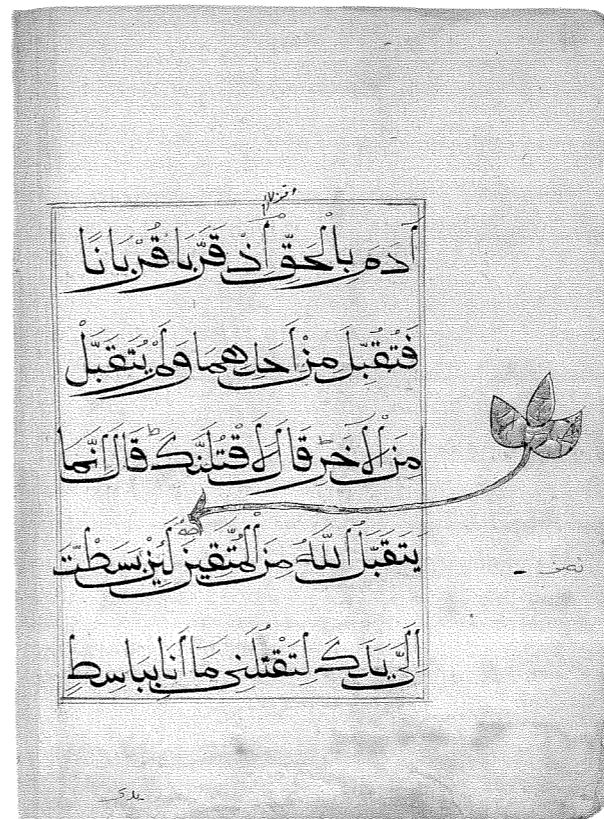 آدَمَ بِالْحَقِّ إِذْ قَرَّبَا قُرْبَانًا
فَتُقُبِّلَ مِنْ أَحَدِهِمَا وَلَمْ يُتَقَبَّلْ
مِنَ الْآخَرِ ط قَالَ لَأَقْتُلَنَّكَ ط قَالَ إِنَّمَا
يَتَقَبَّلُ اللَّهُ مِنَ الْمُتَّقِينَ لَئِنْ بَسَطْتَ
إِلَيَّ يَدَكَ لِتَقْتُلَنِي مَا أَنَا بِبَاسِطٍ